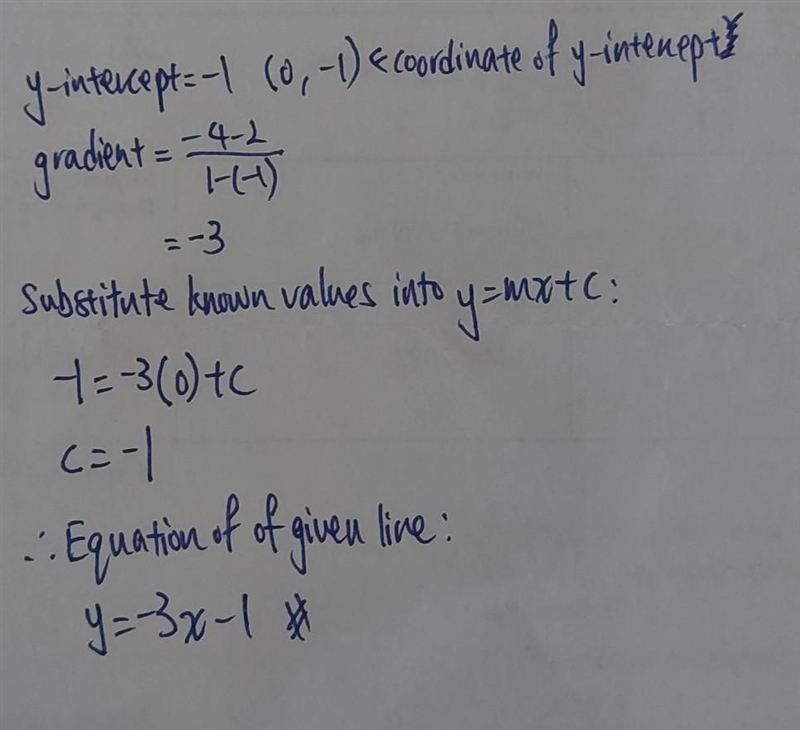 y-intercept=-1 (0,-1) <coordinate of y-intercept
gradient = -4-2
1-(-1)
=-3
Substitute known values into y=mx+c:
-1=-3(0)+c
c=-1
∴ Equation of of given line:
y=-3x-1